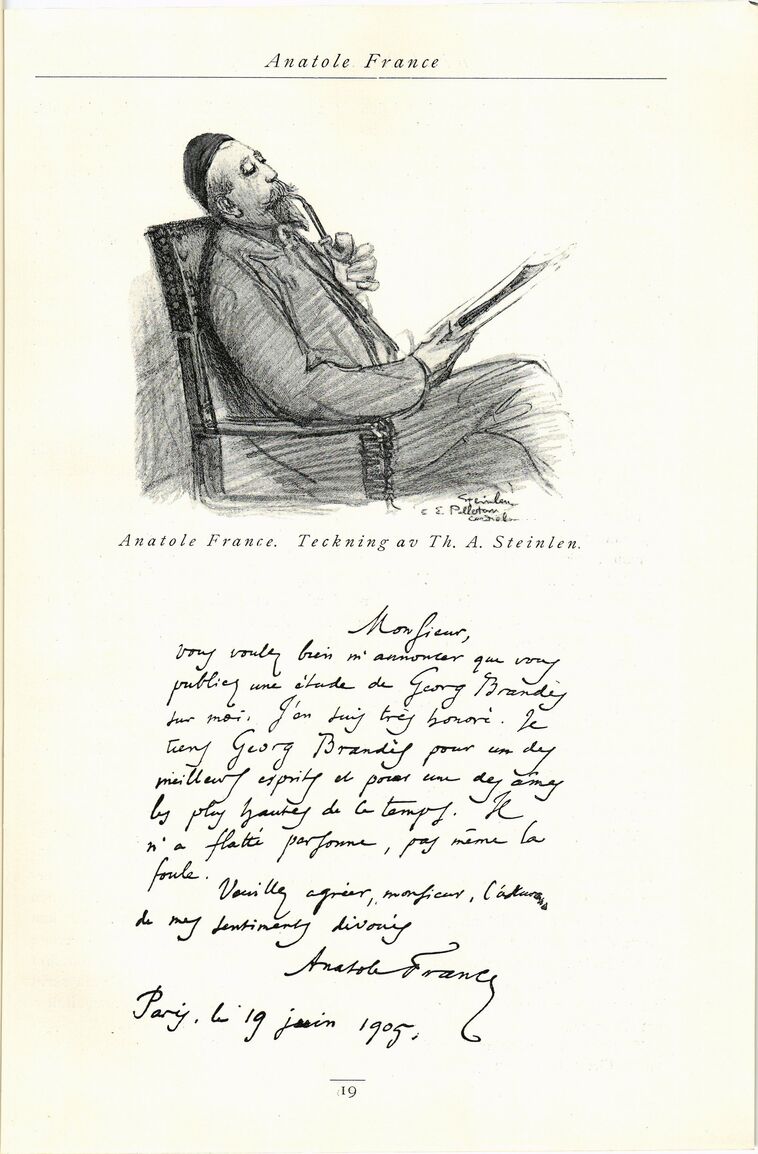 Anatole France
Steinlen
E. Pelletan
Anatole France. Teckning av Th. A. Steinlen.
Monsieur,
vous voulez bien m'annoncer que vous
publiez une étude de Georg Brandès
sur moi. J'en suis très honoré. Je
tiens Georg Brandès pour un des
meilleurs esprits et pour une des âmes
les plus hautes de ce temps. Il
n'a flatté personne, pas même la
foule.
Veuillez agréer, monsieur, l'assurance
de mes sentiments dévoués
Anatole France
Paris, le 19 juin 1905.
19